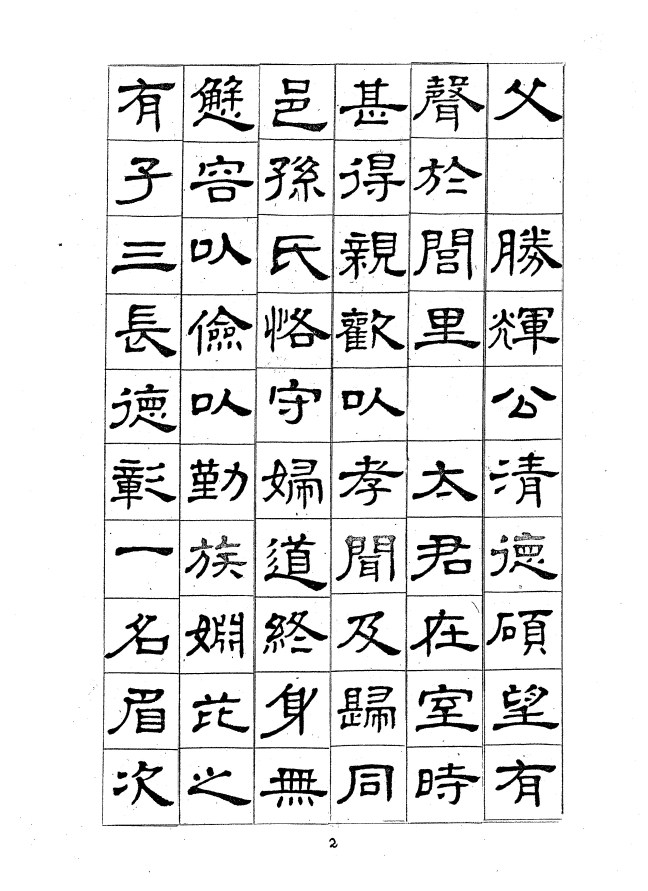 父　勝輝公清德碩望有
聲於閭里　太君在室時
甚得親歡以孝聞及歸同
邑孫氏恪守婦道終身無
愆容以儉以勤族姻芘之
有子三長德彰一名眉次
2